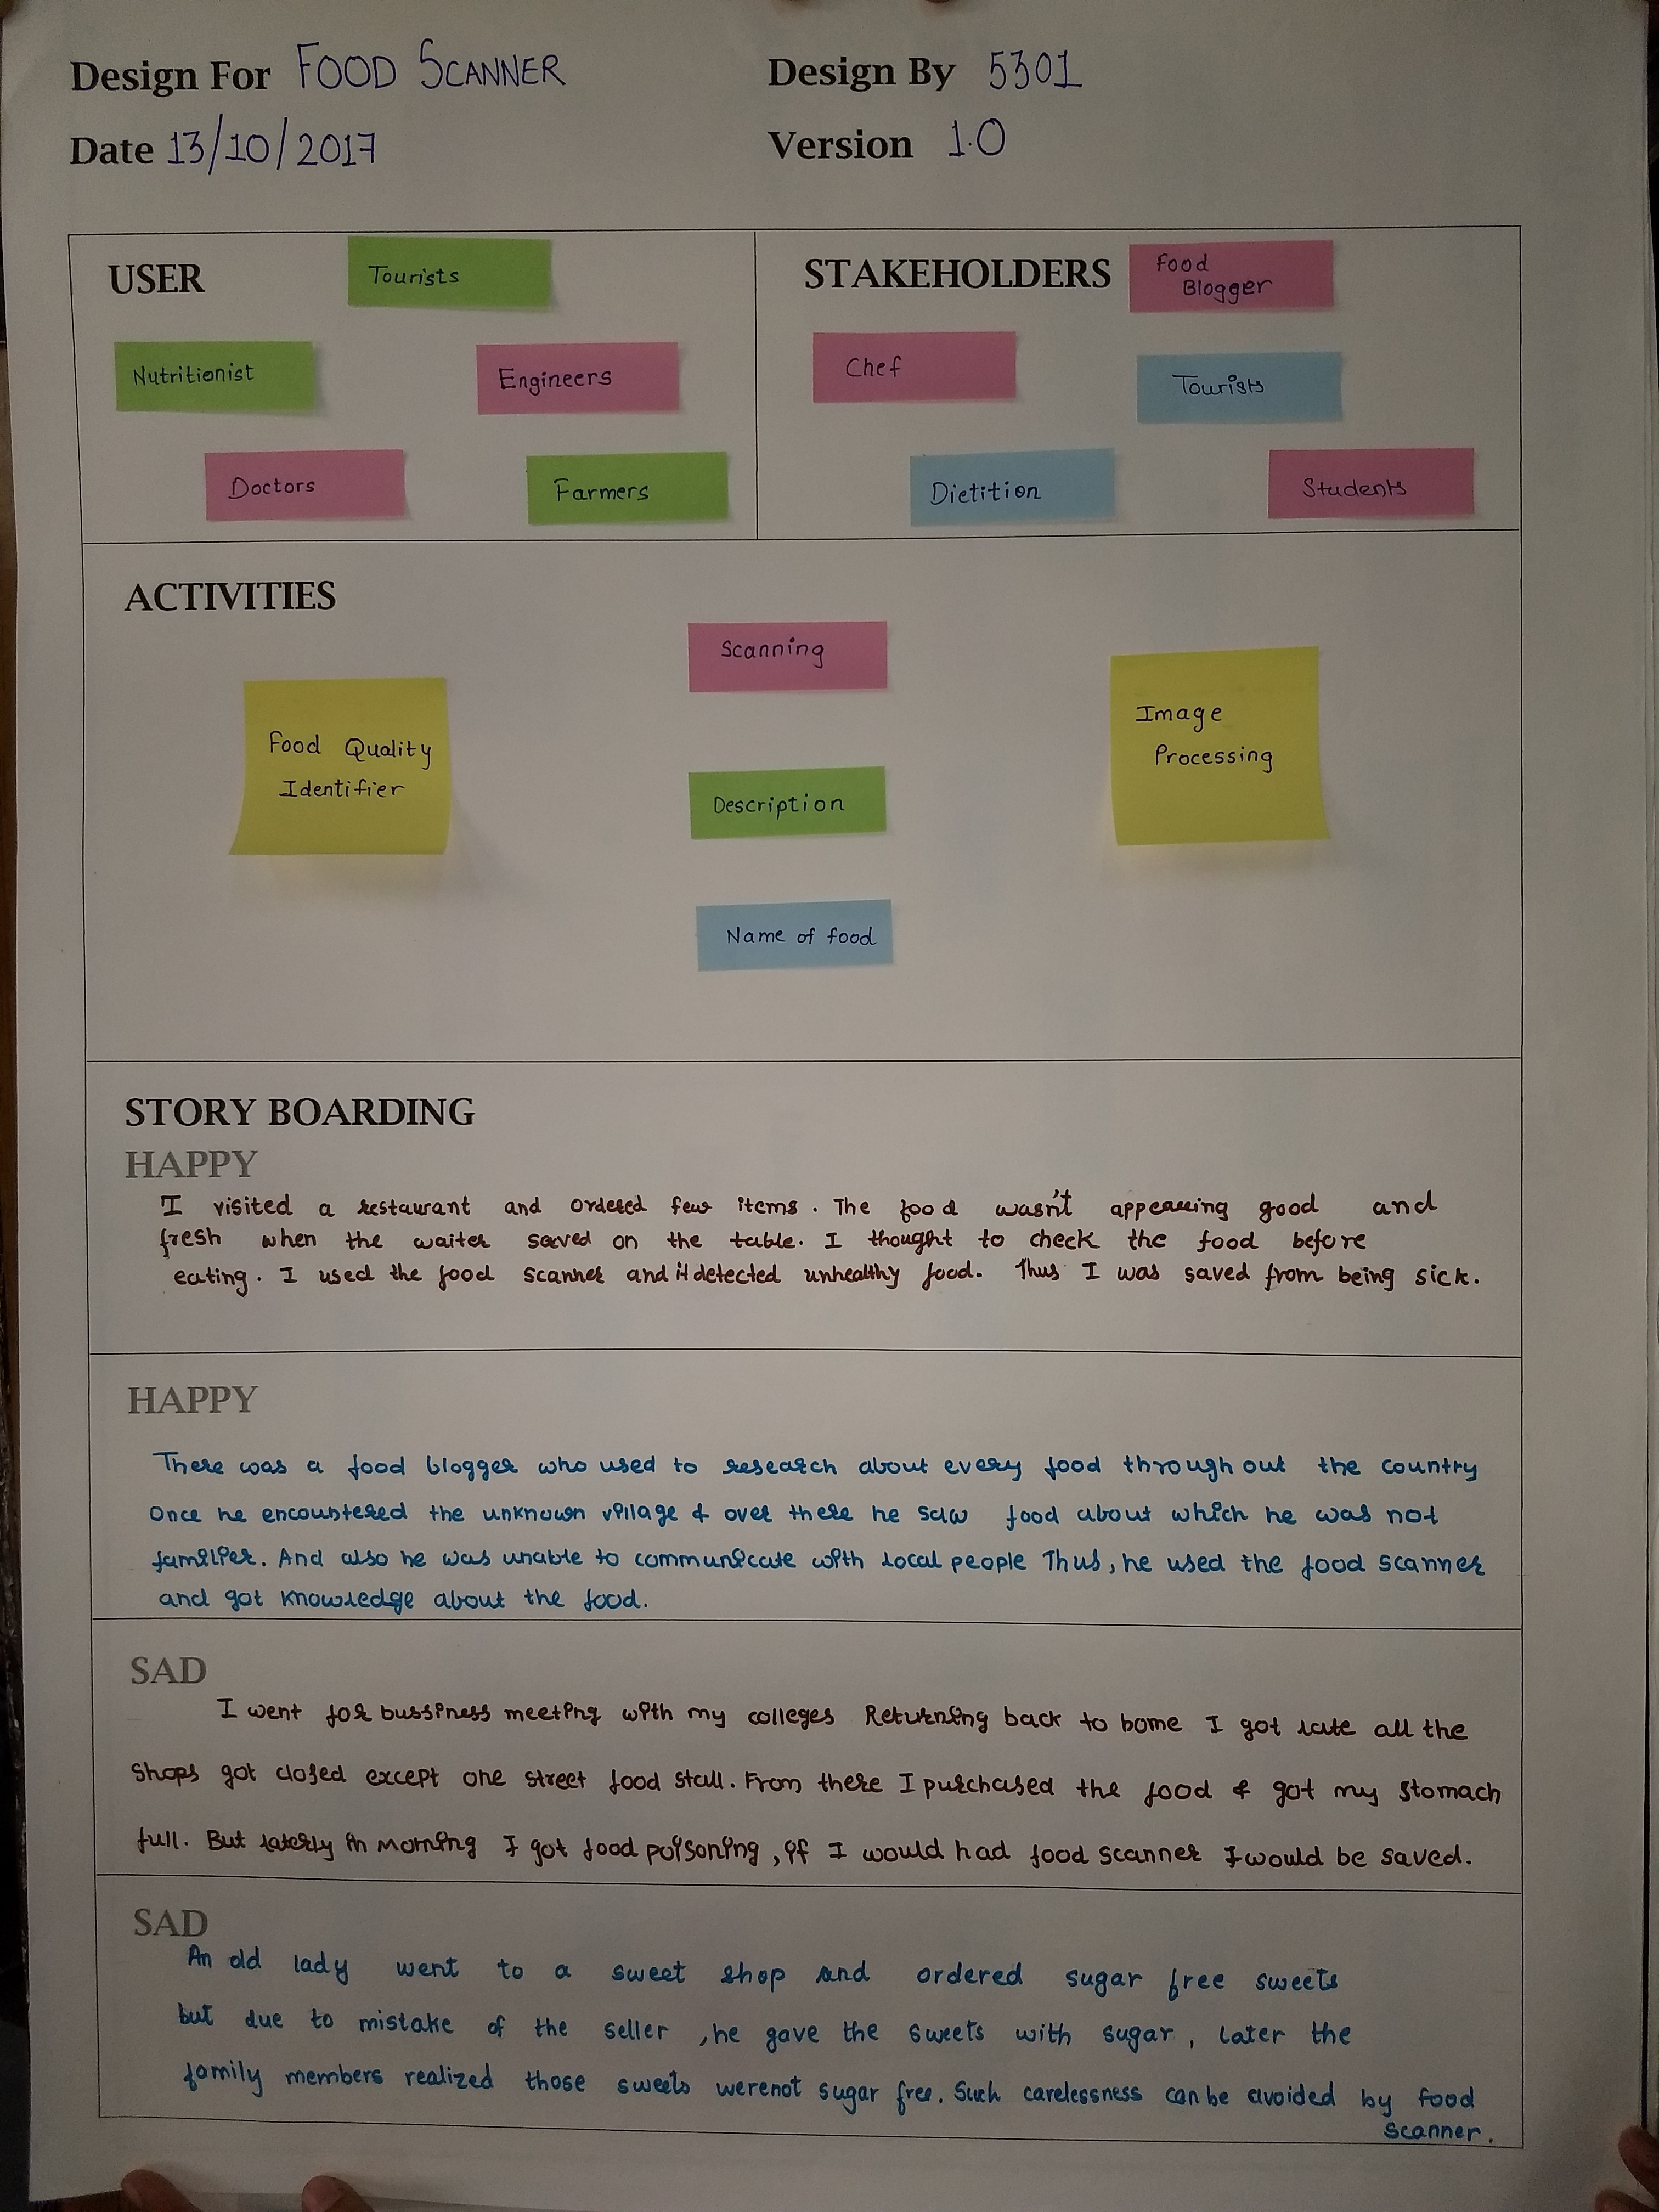 Design For FOOD SCANNER
Design By 5301
Date 13/10/2017
Version 1.0
USER
Tourists
Nutritionist
Engineers
Doctors
Farmers
STAKEHOLDERS
Food
Blogger
Chef
Tourists
Dietition
Students
ACTIVITIES
Scanning
Food Quality
Identifier
Image
Processing
Description
Name of food
STORY BOARDING
HAPPY
I visited a restaurant and ordered few items. The food wasn't appearing good and
fresh when the waiter served on the table. I thought to check the food before
eating. I used the food scanner and it detected unhealthy food. Thus I was saved from being sick.
HAPPY
There was a food blogger who used to research about every food through out the country
Once he encountered the unknown village & over there he saw food about which he was not
familier. And also he was unable to communicate with local people Thus, he used the food scanner
and got knowledge about the food.
SAD
I went for bussiness meeting with my colleges Returning back to home I got late all the
shops got closed except one street food stall. From there I purchased the food & got my stomach
full. But laterly in morning I got food poisoning, if I would had food scanner I would be saved.
SAD
An old lady went to a sweet shop and ordered sugar free sweets
but due to mistake of the seller, he gave the sweets with sugar, later the
family members realized those sweets were not sugar free. Such carelessness can be avoided by food
scanner.